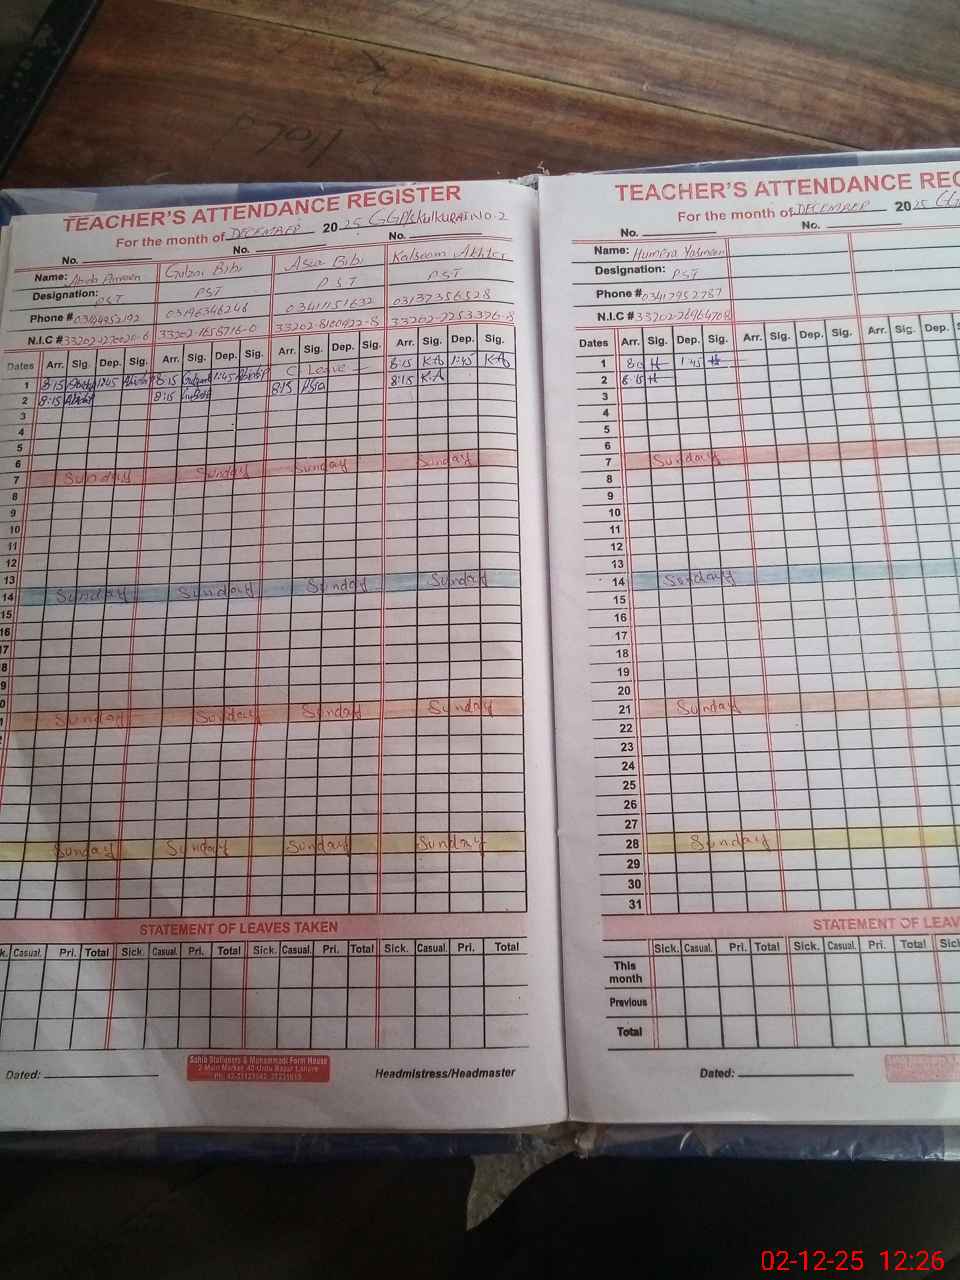 TEACHER'S ATTENDANCE REGISTER
For the month of DECEMBER 2025 GGP/s
No. No. No.
Name: Gulzar Bibi Asia Bibi Kalsoom Akhter
Designation: PST PST PST PST
Phone # 03196346246 03411151632 03137356528
N.I.C # 33202-1658716-0 33202-8100922-8 33202-2253326-8
Dates Arr. Sig. Dep. Sig. Arr. Sig. Dep. Sig. Arr. Sig. Dep. Sig. Arr. Sig. Dep. Sig.
1 8:15 1:45 8:15 1:45 C Leave 8:15 K.A 1:45 K.A
2 8:15 8:15 8:15 Asia 8:15 K.A
3
4
5
6
7 Sunday Sunday Sunday Sunday
8
9
10
11
12
13
14 Sunday Sunday Sunday Sunday
15
16
17
18
19
20
21 Sunday Sunday Sunday Sunday
Sunday Sunday Sunday Sunday
STATEMENT OF LEAVES TAKEN
k. Casual. Pri. Total Sick. Casual. Pri. Total Sick. Casual. Pri. Total Sick. Casual. Pri. Total
Sahib Stationers & Muhammadi Form House
2-Main Market, 40-Urdu Bazar Lahore
Dated: Headmistress/Headmaster
TEACHER'S ATTENDANCE REG
For the month of DECEMBER 2025 GG
No. No.
Name: Humera Yasmeen
Designation: PST
Phone # 03412952787
N.I.C # 33202-26964708
Dates Arr. Sig. Dep. Sig. Arr. Sig. Dep. Sig. Arr. Sig.
1 H 1:45 H
2 8:15 H
3
4
5
6
7 Sunday
8
9
10
11
12
13
14 Sunday
15
16
17
18
19
20
21 Sunday
22
23
24
25
26
27
28 Sunday
29
30
31
STATEMENT OF LEAV
Sick. Casual. Pri. Total Sick. Casual. Pri. Total Sick
This month
Previous
Total
Dated:
02-12-25 12:26